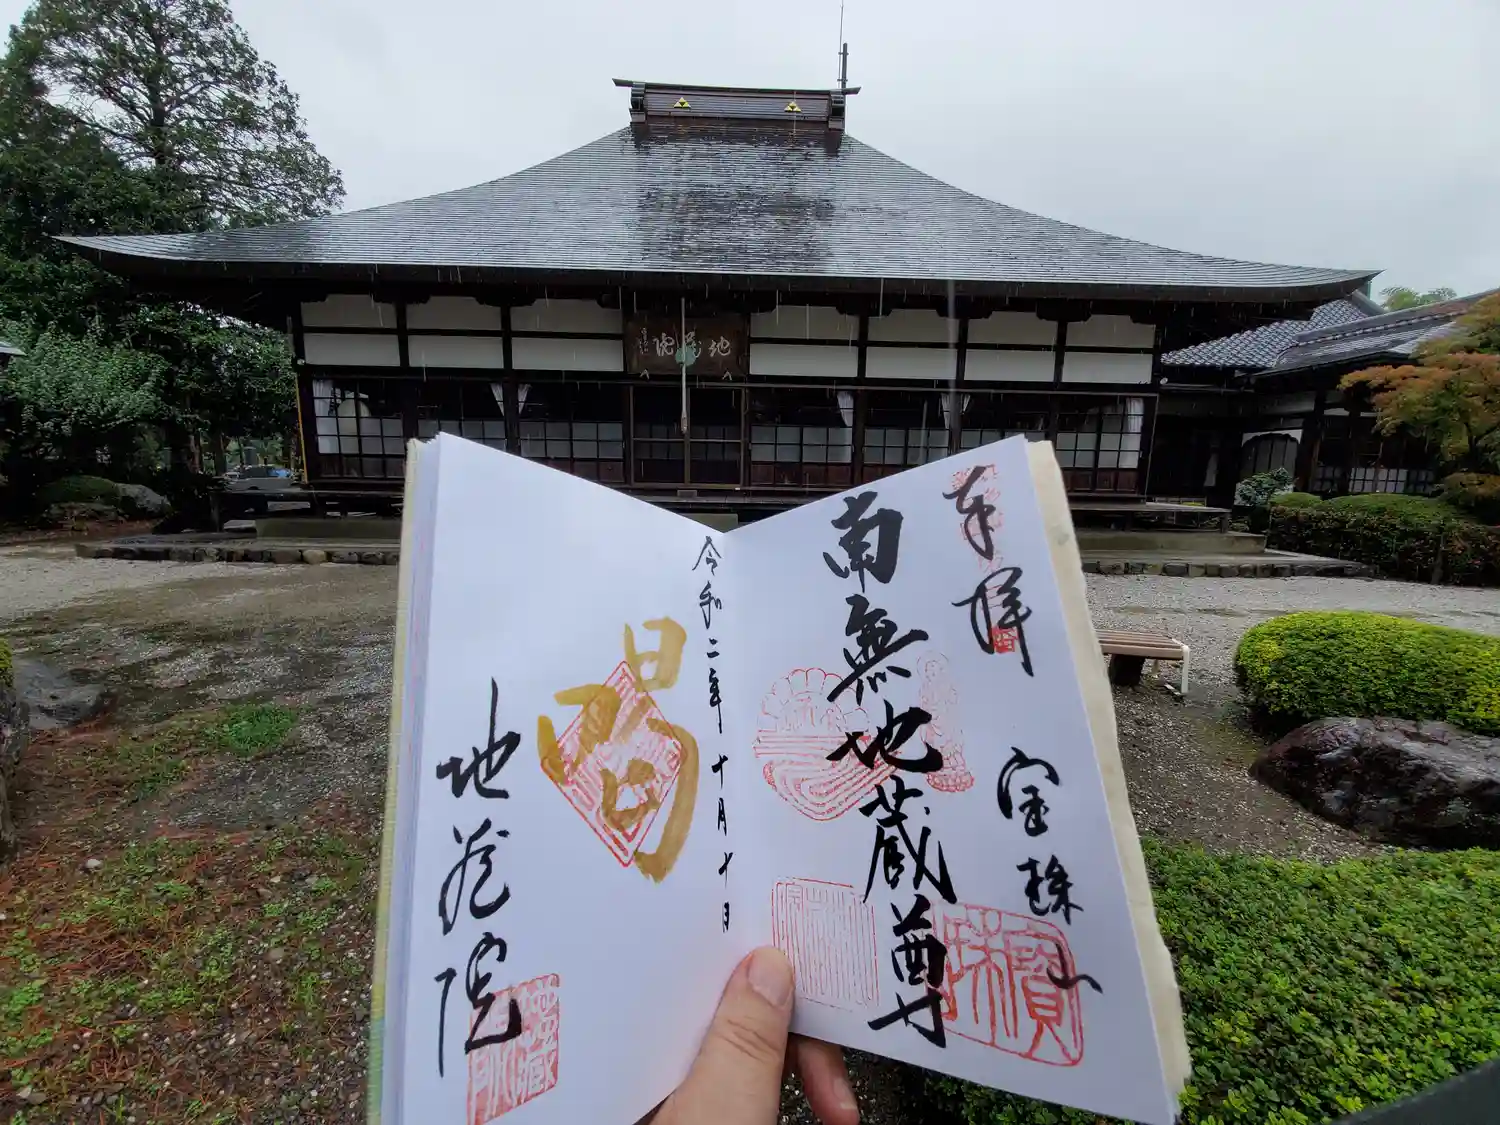 地蔵院
奉拝
宝珠山
南無地蔵尊
令和二年十月十日
地蔵院
寶珠
地蔵